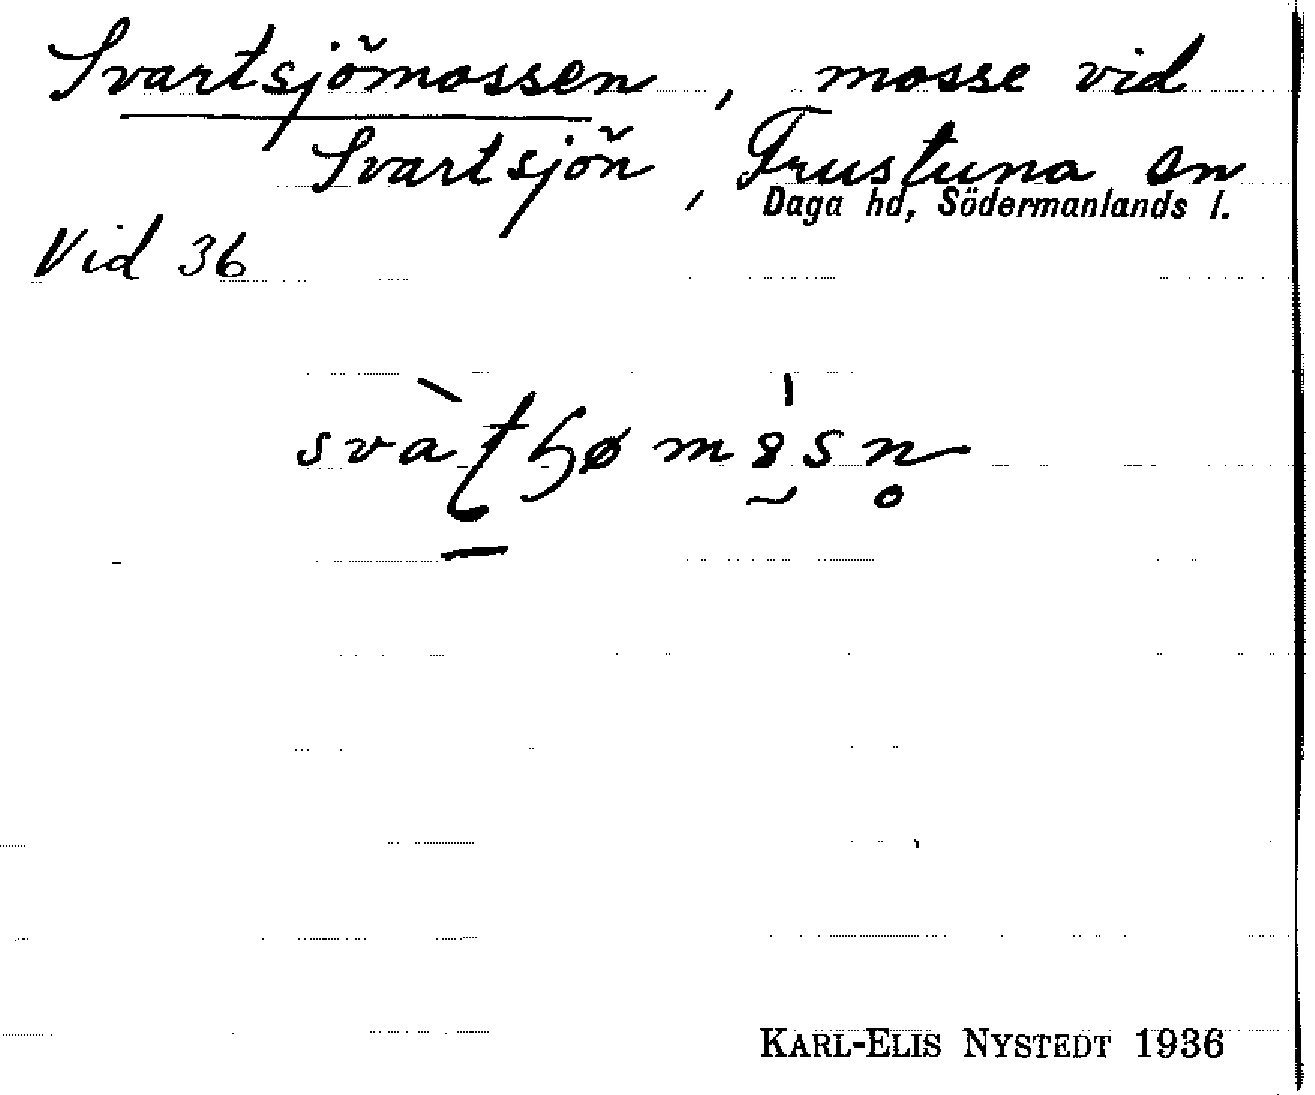 Svartsjömossen, mosse vid
Svartsjön, Frustuna sn
Daga hd, Södermanlands l.
Vid 36
KARL-ELIS NYSTEDT 1936